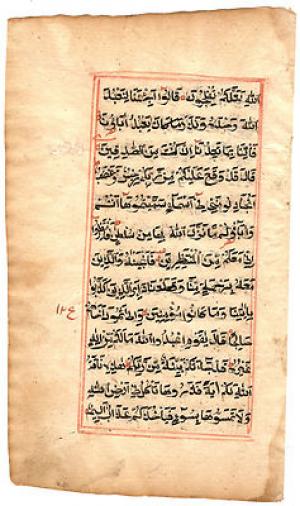 اللهِ لَعَلَّكُمْ تُفْلِحُونَ قَالُوا اَجِئْتَنَا لِنَعْبُدَ
اللهَ وَحْدَهُ وَنَذَرَ مَا كَانَ يَعْبُدُ اٰبَاؤُنَا
فَاْتِنَا بِمَا تَعِدُنَا اِنْ كُنْتَ مِنَ الصّٰدِقِينَ
قَالَ قَدْ وَقَعَ عَلَيْكُمْ مِنْ رَبِّكُمْ رِجْسٌ وَغَضَبٌ
اَتُجَادِلُونَنِي فِي اَسْمَاءٍ سَمَّيْتُمُوهَا اَنْتُمْ
وَاٰبَاؤُكُمْ مَا نَزَّلَ اللهُ بِهَا مِنْ سُلْطٰنٍ فَانْتَظِرُوا
اِنِّي مَعَكُمْ مِنَ الْمُنْتَظِرِينَ فَاَنْجَيْنٰهُ وَالَّذِينَ
مَعَهُ بِرَحْمَةٍ مِنَّا وَقَطَعْنَا دَابِرَ الَّذِينَ كَذَّبُوا
بِاٰيٰتِنَا وَمَا كَانُوا مُؤْمِنِينَ وَاِلٰى ثَمُودَ اَخَاهُمْ
صٰلِحًا قَالَ يٰقَوْمِ اعْبُدُوا اللهَ مَا لَكُمْ مِنْ اِلٰهٍ
غَيْرُهُ قَدْ جَاءَتْكُمْ بَيِّنَةٌ مِنْ رَبِّكُمْ هٰذِهِ نَاقَةُ
اللهِ لَكُمْ اٰيَةً فَذَرُوهَا تَاْكُلْ فِي اَرْضِ اللهِ
وَلَا تَمَسُّوهَا بِسُوءٍ فَيَاْخُذَكُمْ عَذَابٌ اَلِيمٌ